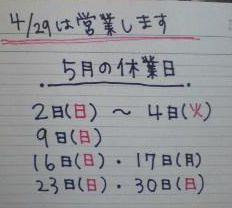 4/29は営業します
5月の休業日
2日(日) ～ 4日(火)
9日(日)
16日(日)・17日(月)
23日(日)・30日(日)